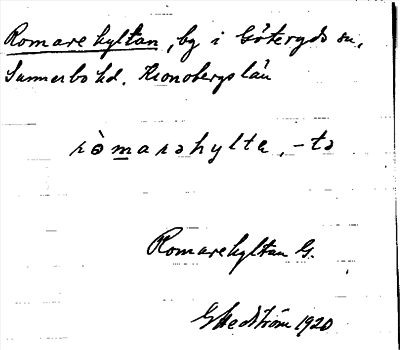 Romarehyltan, by i Göteryds sn,
Sunnerbo hd. Kronobergs län
ròmarəhylta, -tə
Romarehyltan G.
G Hedström 1920